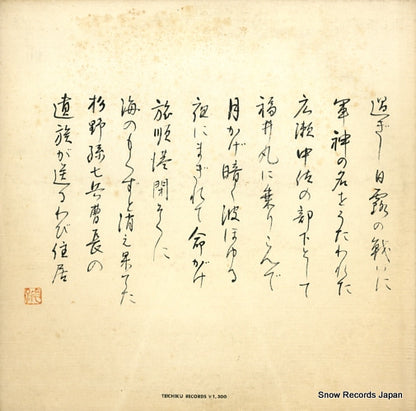 過ぎし日露の戦いに
軍神の名をうたわれた
広瀬中佐の部下として
福井丸に乗りこんで
月かげ暗く波ほゆる
夜にまぎれて命がけ
旅順港閉そくに
海のもくずと消え果てた
杉野孫七兵曹長の
遺族が送るわび住居
TEICHIKU RECORDS ¥1,800
Snow Records Japan